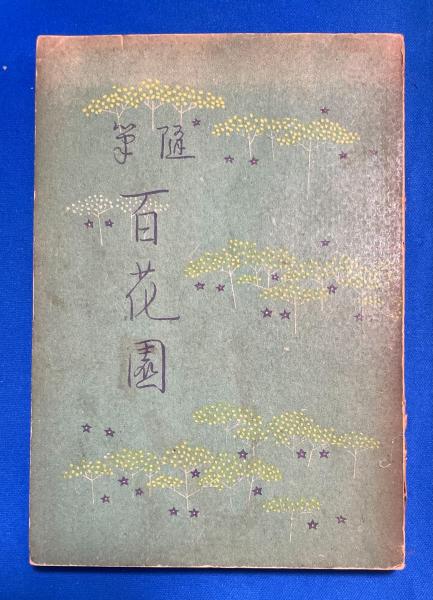 随筆
百花園